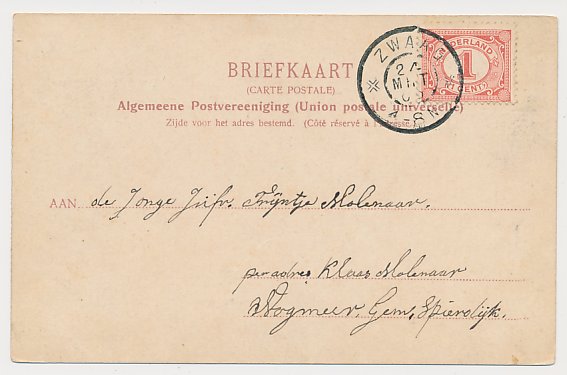 BRIEFKAART
(CARTE POSTALE)
Algemeene Postvereeniging (Union postale universelle)
Zijde voor het adres bestemd. (Côté réservé à l'adresse.)
NEDERLAND
1
CENT
ZWAAG
MRT
AAN de Jonge Jufr. Trijntje Molenaar.
per adres Klaas Molenaar
Wogmeer, Gem, Spierdijk.